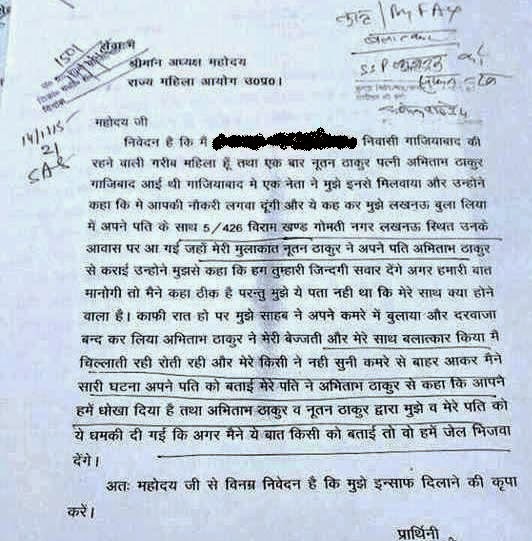 सेवा में
श्रीमान अध्यक्ष महोदय
राज्य महिला आयोग उ०प्र०।
1501
14/1/15
21
SAS
By FAX
बलात्कार
SSP
महोदय जी
निवेदन है कि मैं निवासी गाजियाबाद की
रहने वाली गरीब महिला हूँ तथा एक बार नूतन ठाकुर पत्नी अभिताभ ठाकुर
गाजिबाद आई थी गाजियाबाद मे एक नेता ने मुझे इनसे मिलवाया और उन्होने
कहा कि मे आपकी नौकरी लगवा दूंगी और ये कह कर मुझे लखनऊ बुला लिया
में अपने पति के साथ 5/426 विराम खण्ड गोमती नगर लखनऊ स्थित उनके
आवास पर आ गई जहाँ मेरी मुलाकात नूतन ठाकुर ने अपने पति अभिताभ ठाकुर
से कराई उन्होने मुझसे कहा कि हम तुम्हारी जिन्दगी सवार देंगे अगर हमारी बात
मानोगी तो मैने कहा ठीक है परन्तु मुझे ये पता नही था कि मेरे साथ क्या होने
वाला है। काफी रात हो पर मुझे साहब ने अपने कमरे में बुलाया और दरवाजा
बन्द कर लिया अभिताभ ठाकुर ने मेरी बेज्जती और मेरे साथ बलात्कार किया मै
चिल्लाती रही रोती रही और मेरे किसी ने नही सुनी कमरे से बाहर आकर मैने
सारी घटना अपने पति को बताई मेरे पति ने अभिताभ ठाकुर से कहा कि आपने
हमें धोखा दिया है तथा अभिताभ ठाकुर व नूतन ठाकुर द्वारा मुझे व मेरे पति को
ये धमकी दी गई कि अगर मैने ये बात किसी को बताई तो वो हमें जेल भिजवा
देंगे।
अतः महोदय जी से विनम्र निवेदन है कि मुझे इन्साफ दिलाने की कृपा
करें।
प्रार्थिनी